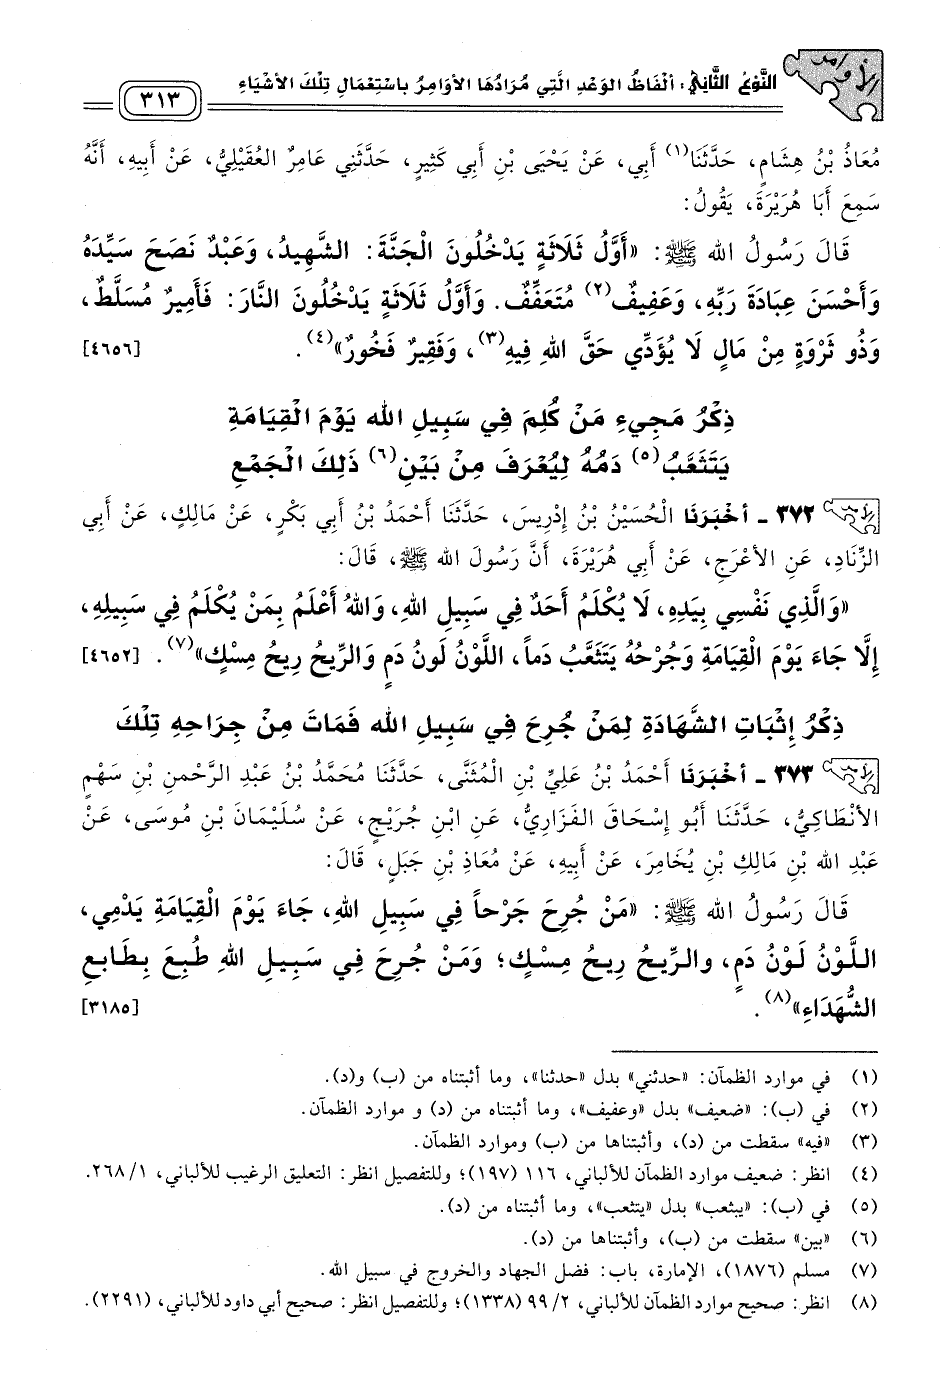 الأوامر
النَّوْعُ الثَّانِيْ: أَلْفَاظُ الوَعْدِ الَّتِي مُرَادُهَا الأَوَامِرُ بِاسْتِعْمَالِ تِلْكَ الأَشْيَاءِ
٣١٣
مُعَاذُ بْنُ هِشَامٍ، حَدَّثَنَا(١) أَبِي، عَنْ يَحْيَى بْنِ أَبِي كَثِيرٍ، حَدَّثَنِي عَامِرٌ العُقَيْلِيُّ، عَنْ أَبِيهِ، أَنَّهُ
سَمِعَ أَبَا هُرَيْرَةَ، يَقُولُ:
قَالَ رَسُولُ اللهِ ﷺ: «أَوَّلُ ثَلَاثَةٍ يَدْخُلُونَ الْجَنَّةَ: الشَّهِيدُ، وَعَبْدٌ نَصَحَ سَيِّدَهُ
وَأَحْسَنَ عِبَادَةَ رَبِّهِ، وَعَفِيفٌ(٢) مُتَعَفِّفٌ. وَأَوَّلُ ثَلَاثَةٍ يَدْخُلُونَ النَّارَ: فَأَمِيرٌ مُسَلَّطٌ،
وَذُو ثَرْوَةٍ مِنْ مَالٍ لَا يُؤَدِّي حَقَّ اللهِ فِيهِ(٣)، وَفَقِيرٌ فَخُورٌ»(٤). [٤٦٥٦]
ذِكْرُ مَجِيءِ مَنْ كُلِمَ فِي سَبِيلِ اللهِ يَوْمَ الْقِيَامَةِ
يَتَثَعَّبُ(٥) دَمُهُ لِيُعْرَفَ مِنْ بَيْنِ(٦) ذَلِكَ الْجَمْعِ
٣٧٢ - أَخْبَرَنَا الْحُسَيْنُ بْنُ إِدْرِيسَ، حَدَّثَنَا أَحْمَدُ بْنُ أَبِي بَكْرٍ، عَنْ مَالِكٍ، عَنْ أَبِي
الزِّنَادِ، عَنِ الأَعْرَجِ، عَنْ أَبِي هُرَيْرَةَ، أَنَّ رَسُولَ اللهِ ﷺ، قَالَ:
«وَالَّذِي نَفْسِي بِيَدِهِ، لَا يُكْلَمُ أَحَدٌ فِي سَبِيلِ اللهِ، وَاللهُ أَعْلَمُ بِمَنْ يُكْلَمُ فِي سَبِيلِهِ،
إِلَّا جَاءَ يَوْمَ الْقِيَامَةِ وَجُرْحُهُ يَتَثَعَّبُ دَماً، اللَّوْنُ لَونُ دَمٍ وَالرِّيحُ رِيحُ مِسْكٍ»(٧). [٤٦٥٢]
ذِكْرُ إِثْبَاتِ الشَّهَادَةِ لِمَنْ جُرِحَ فِي سَبِيلِ اللهِ فَمَاتَ مِنْ جِرَاحِهِ تِلْكَ
٣٧٣ - أَخْبَرَنَا أَحْمَدُ بْنُ عَلِيِّ بْنِ الْمُثَنَّى، حَدَّثَنَا مُحَمَّدُ بْنُ عَبْدِ الرَّحْمنِ بْنِ سَهْمٍ
الأَنْطَاكِيُّ، حَدَّثَنَا أَبُو إِسْحَاقَ الفَزَارِيُّ، عَنِ ابْنِ جُرَيْجٍ، عَنْ سُلَيْمَانَ بْنِ مُوسَى، عَنْ
عَبْدِ اللهِ بْنِ مَالِكِ بْنِ يُخَامِرَ، عَنْ أَبِيهِ، عَنْ مُعَاذِ بْنِ جَبَلٍ، قَالَ:
قَالَ رَسُولُ اللهِ ﷺ: «مَنْ جُرِحَ جَرْحاً فِي سَبِيلِ اللهِ، جَاءَ يَوْمَ الْقِيَامَةِ يَدْمِي،
اللَّوْنُ لَوْنُ دَمٍ، والرِّيحُ رِيحُ مِسْكٍ؛ وَمَنْ جُرِحَ فِي سَبِيلِ اللهِ طُبِعَ بِطَابعِ
الشُّهَدَاءِ»(٨). [٣١٨٥]
(١) في موارد الظمآن: «حدثني» بدل «حدثنا»، وما أثبتناه من (ب) و(د).
(٢) في (ب): «ضعيف» بدل «وعفيف»، وما أثبتناه من (د) و موارد الظمآن.
(٣) «فيه» سقطت من (د)، وأثبتناها من (ب) وموارد الظمآن.
(٤) انظر: ضعيف موارد الظمآن للألباني، ١١٦ (١٩٧)؛ وللتفصيل انظر: التعليق الرغيب للألباني، ٢٦٨/١.
(٥) في (ب): «يثعب» بدل «يتثعب»، وما أثبتناه من (د).
(٦) «بين» سقطت من (ب)، وأثبتناها من (د).
(٧) مسلم (١٨٧٦)، الإمارة، باب: فضل الجهاد والخروج في سبيل الله.
(٨) انظر: صحيح موارد الظمآن للألباني، ٩٩/٢ (١٣٣٨)؛ وللتفصيل انظر: صحيح أبي داود للألباني، (٢٢٩١).